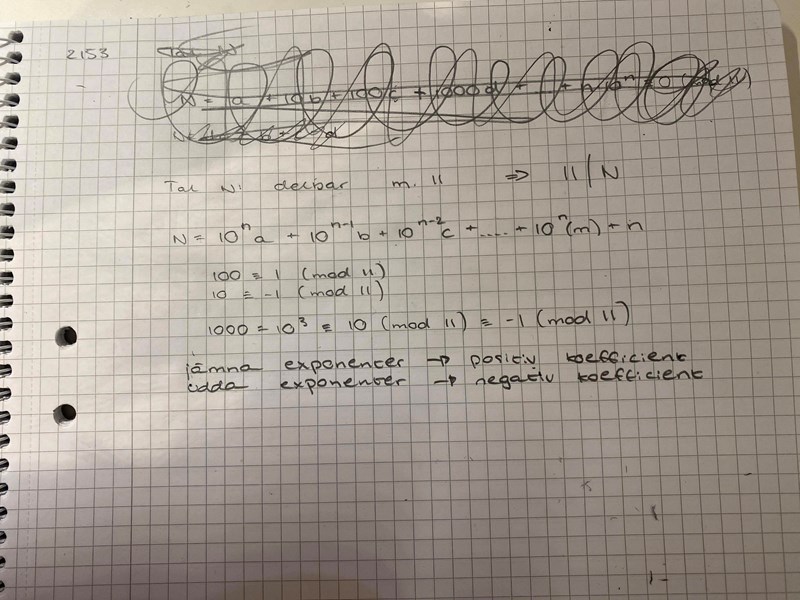 2153
N = a + 10b + 100c + 1000d + ... +
Tal N: delbar m. 11 => 11 | N
N = 10ⁿa + 10ⁿ⁻¹b + 10ⁿ⁻²c + ..... + 10ⁿ(m) + n
100 ≡ 1 (mod 11)
10 ≡ -1 (mod 11)
1000 = 10³ ≡ 10 (mod 11) ≡ -1 (mod 11)
jämna exponenter → positiv koefficient
udda exponenter → negativ koefficient